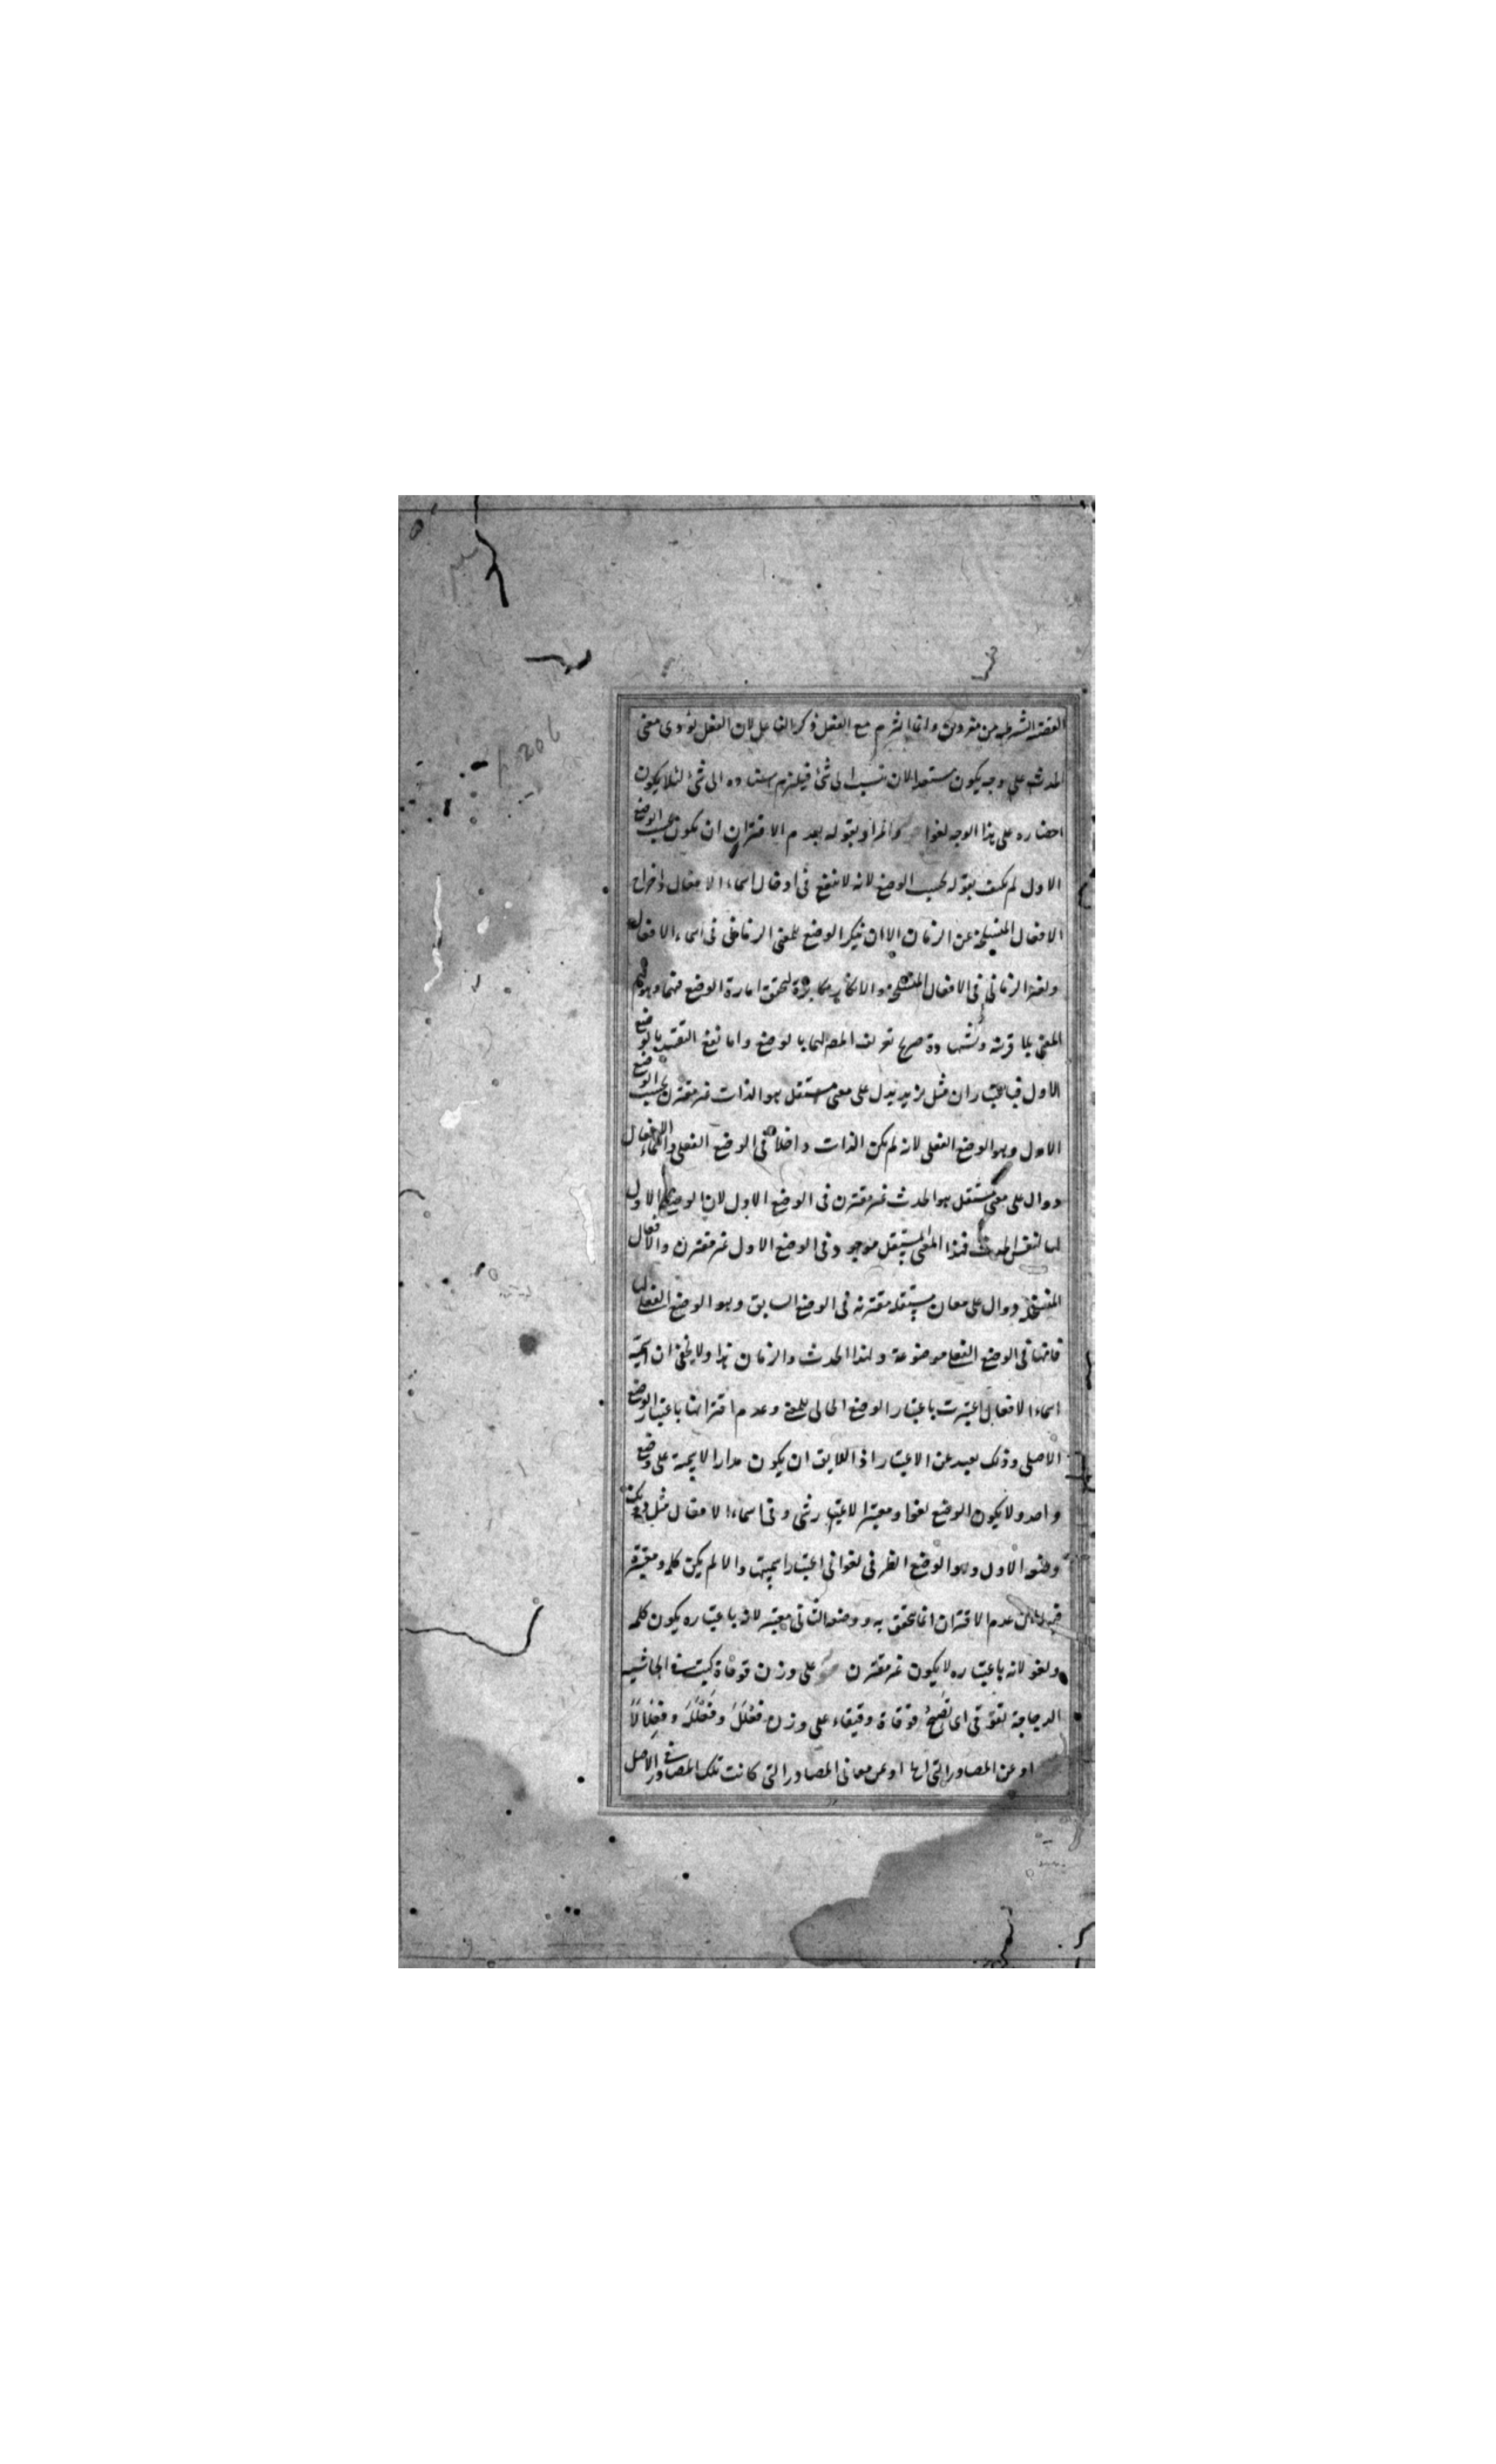 القضية الشرطية من مفردين وانما التزم مع الفعل ذكر الفاعل لان الفعل يؤدى معنى
الحدث على وجه يكون مستعدا لان ينسب الى شئ فيلزم اسناده الى شئ لئلا يكون
احضاره على هذا الوجه لغوا والمراد بقوله بعدم الاقتران ان يكون بحسب الوضع
الاول لم يكتف بقوله بحسب الوضع لانه لا ينفع فى ادخال اسماء الافعال واخراج
الافعال المنسلخة عن الزمان الا ان ينكر الوضع للمعنى الزمانى فى اسماء الافعال
ولغير الزمانى فى الافعال المنسلخة والانكار مكابرة لتحقق امارة الوضع فيها وهو فهم
المعنى بلا قرينة وشهادة صرح تعريف المص لها بالوضع واما نفع التقييد بالوضع
الاول فباعتبار ان مثل يزيد يدل على معنى مستقل هو الذات غير مقترن بحسب الوضع
الاول وهو الوضع الفعلى لانه لم يكن الذات داخلا فى الوضع الفعلى واسماء الافعال
دوال على معنى مستقل هو الحدث غير مقترن فى الوضع الاول لان الوضع الاول
لها لنفس الحدث فهذا المعنى المستقل موجود فى الوضع الاول غير مقترن والافعال
المنسلخة دوال على معان مستقلة مقترنة فى الوضع السابق وهو الوضع الفعلى لها
فانها فى الوضع الفعلى موضوعة ولهذا الحدث والزمان هذا ولا يخفى ان اسمية
اسماء الافعال اعتبرت باعتبار الوضع الحالى للمعنى وعدم اقترانها باعتبار الوضع
الاصلى وذلك بعيد عن الاعتبار اذ اللايق ان يكون مدار الاسمية على وضع
واحد ولا يكون الوضع لغوا ومعتبرا لاعتبار شئ وفى اسماء الافعال مثل دونك
وضعه الاول وهو الوضع الظرفى لغوا فى اعتبار اسميتها والا لم يكن كلمة ومعتبرة
عدم الاقتران انما تحقق به ووضعه الثانى معتبر لانه باعتباره يكون كلمة
ولغو لانه باعتباره لا يكون غير مقترن على وزن قوقاة كتبت فى الحاشية
الدجاجة تقوقى اى تصيح قوقاة وقيقاء على وزن فعلل وفعللة وفعلالا
او عن المصادر التى لها او عن معانى المصادر التى كانت تلك المصادر فى الاصل